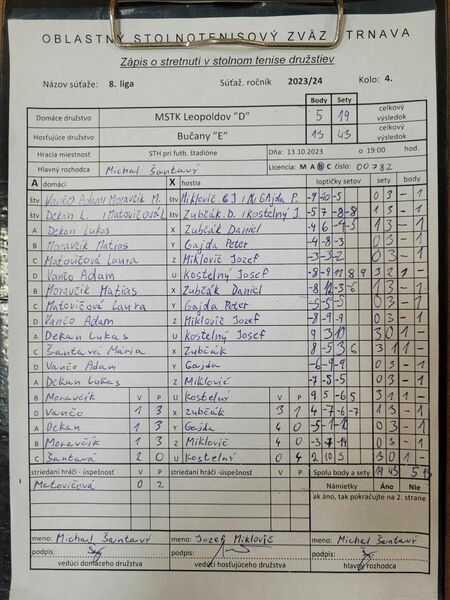 OBLASTNÝ STOLNOTENISOVÝ ZVÄZ TRNAVA
Zápis o stretnutí v stolnom tenise družstiev
Názov súťaže: 8. liga Súťaž. ročník 2023/24 Kolo: 4.
Body Sety
Domáce družstvo MSTK Leopoldov "D" 5 19 celkový výsledok
Hosťujúce družstvo Bučany "E" 13 43 celkový výsledok
Hracia miestnosť STH pri futb. štadióne Dňa: 13.10.2023 o 19:00 hod.
Hlavný rozhodca Michal Šantavý Licencia: M A B C číslo: 00782
A domáci X hostia loptičky setov sety body
štv Vančo Adam Moravčík M. štv Miklovič
štv Dekan L. Matovičová L štv Zubčák D. / Kostelný J. -5 7 -8 -8 1 3 - 1
A Dekan Lukas X Zubčák Daniel 1 3 - 1
B Moravčík Matias Y Gajda Peter -4 -8 -3 0 3 - 1
C Matovičová Laura Z Miklovič Jozef -3 -3 -2 0 3 - 1
D Vančo Adam U Kostelný Josef -8 -9 11 8 9 3 2 1 -
B Moravčík Matias X Zubčák Daniel 1 3 - 1
C Matovičová Laura Y Gajda Peter -5 -5 -5 0 3 - 1
D Vančo Adam Z Miklovič Jozef -8 -9 -9 0 3 - 1
A Dekan Lukas U Kostelný Josef 9 3 10 3 0 1 -
C Šantavá Mária X Zubčák 8 -5 3 6 3 1 1 -
D Vančo Adam Y Gajda -6 -9 -9 0 3 - 1
A Dekan Lukas Z Miklovič -7 -8 -5 0 3 - 1
B Moravčík V P U Kostelný V P 9 5 -6 5 3 1 1 -
D Vančo 1 3 X Zubčák 3 1 4 -7 -6 -7 1 3 - 1
A Dekan 1 3 Y Gajda 4 0 0 3 - 1
B Moravčík 1 3 Z Miklovič 4 0 -3 -7 -14 0 3 - 1
C Šantavá 2 0 U Kostelný 0 4 2 10 3 3 0 1 -
striedaní hráči - úspešnosť V P striedaní hráči - úspešnosť V P Spolu body a sety 19 43 5 13
Matovičová 0 2 Námietky Áno Nie
ak áno, tak pokračujte na 2. strane
meno: Michal Šantavý meno: Jozef Miklovič meno: Michal Šantavý
podpis: podpis: podpis:
vedúci domáceho družstva vedúci hosťujúceho družstva hlavný rozhodca